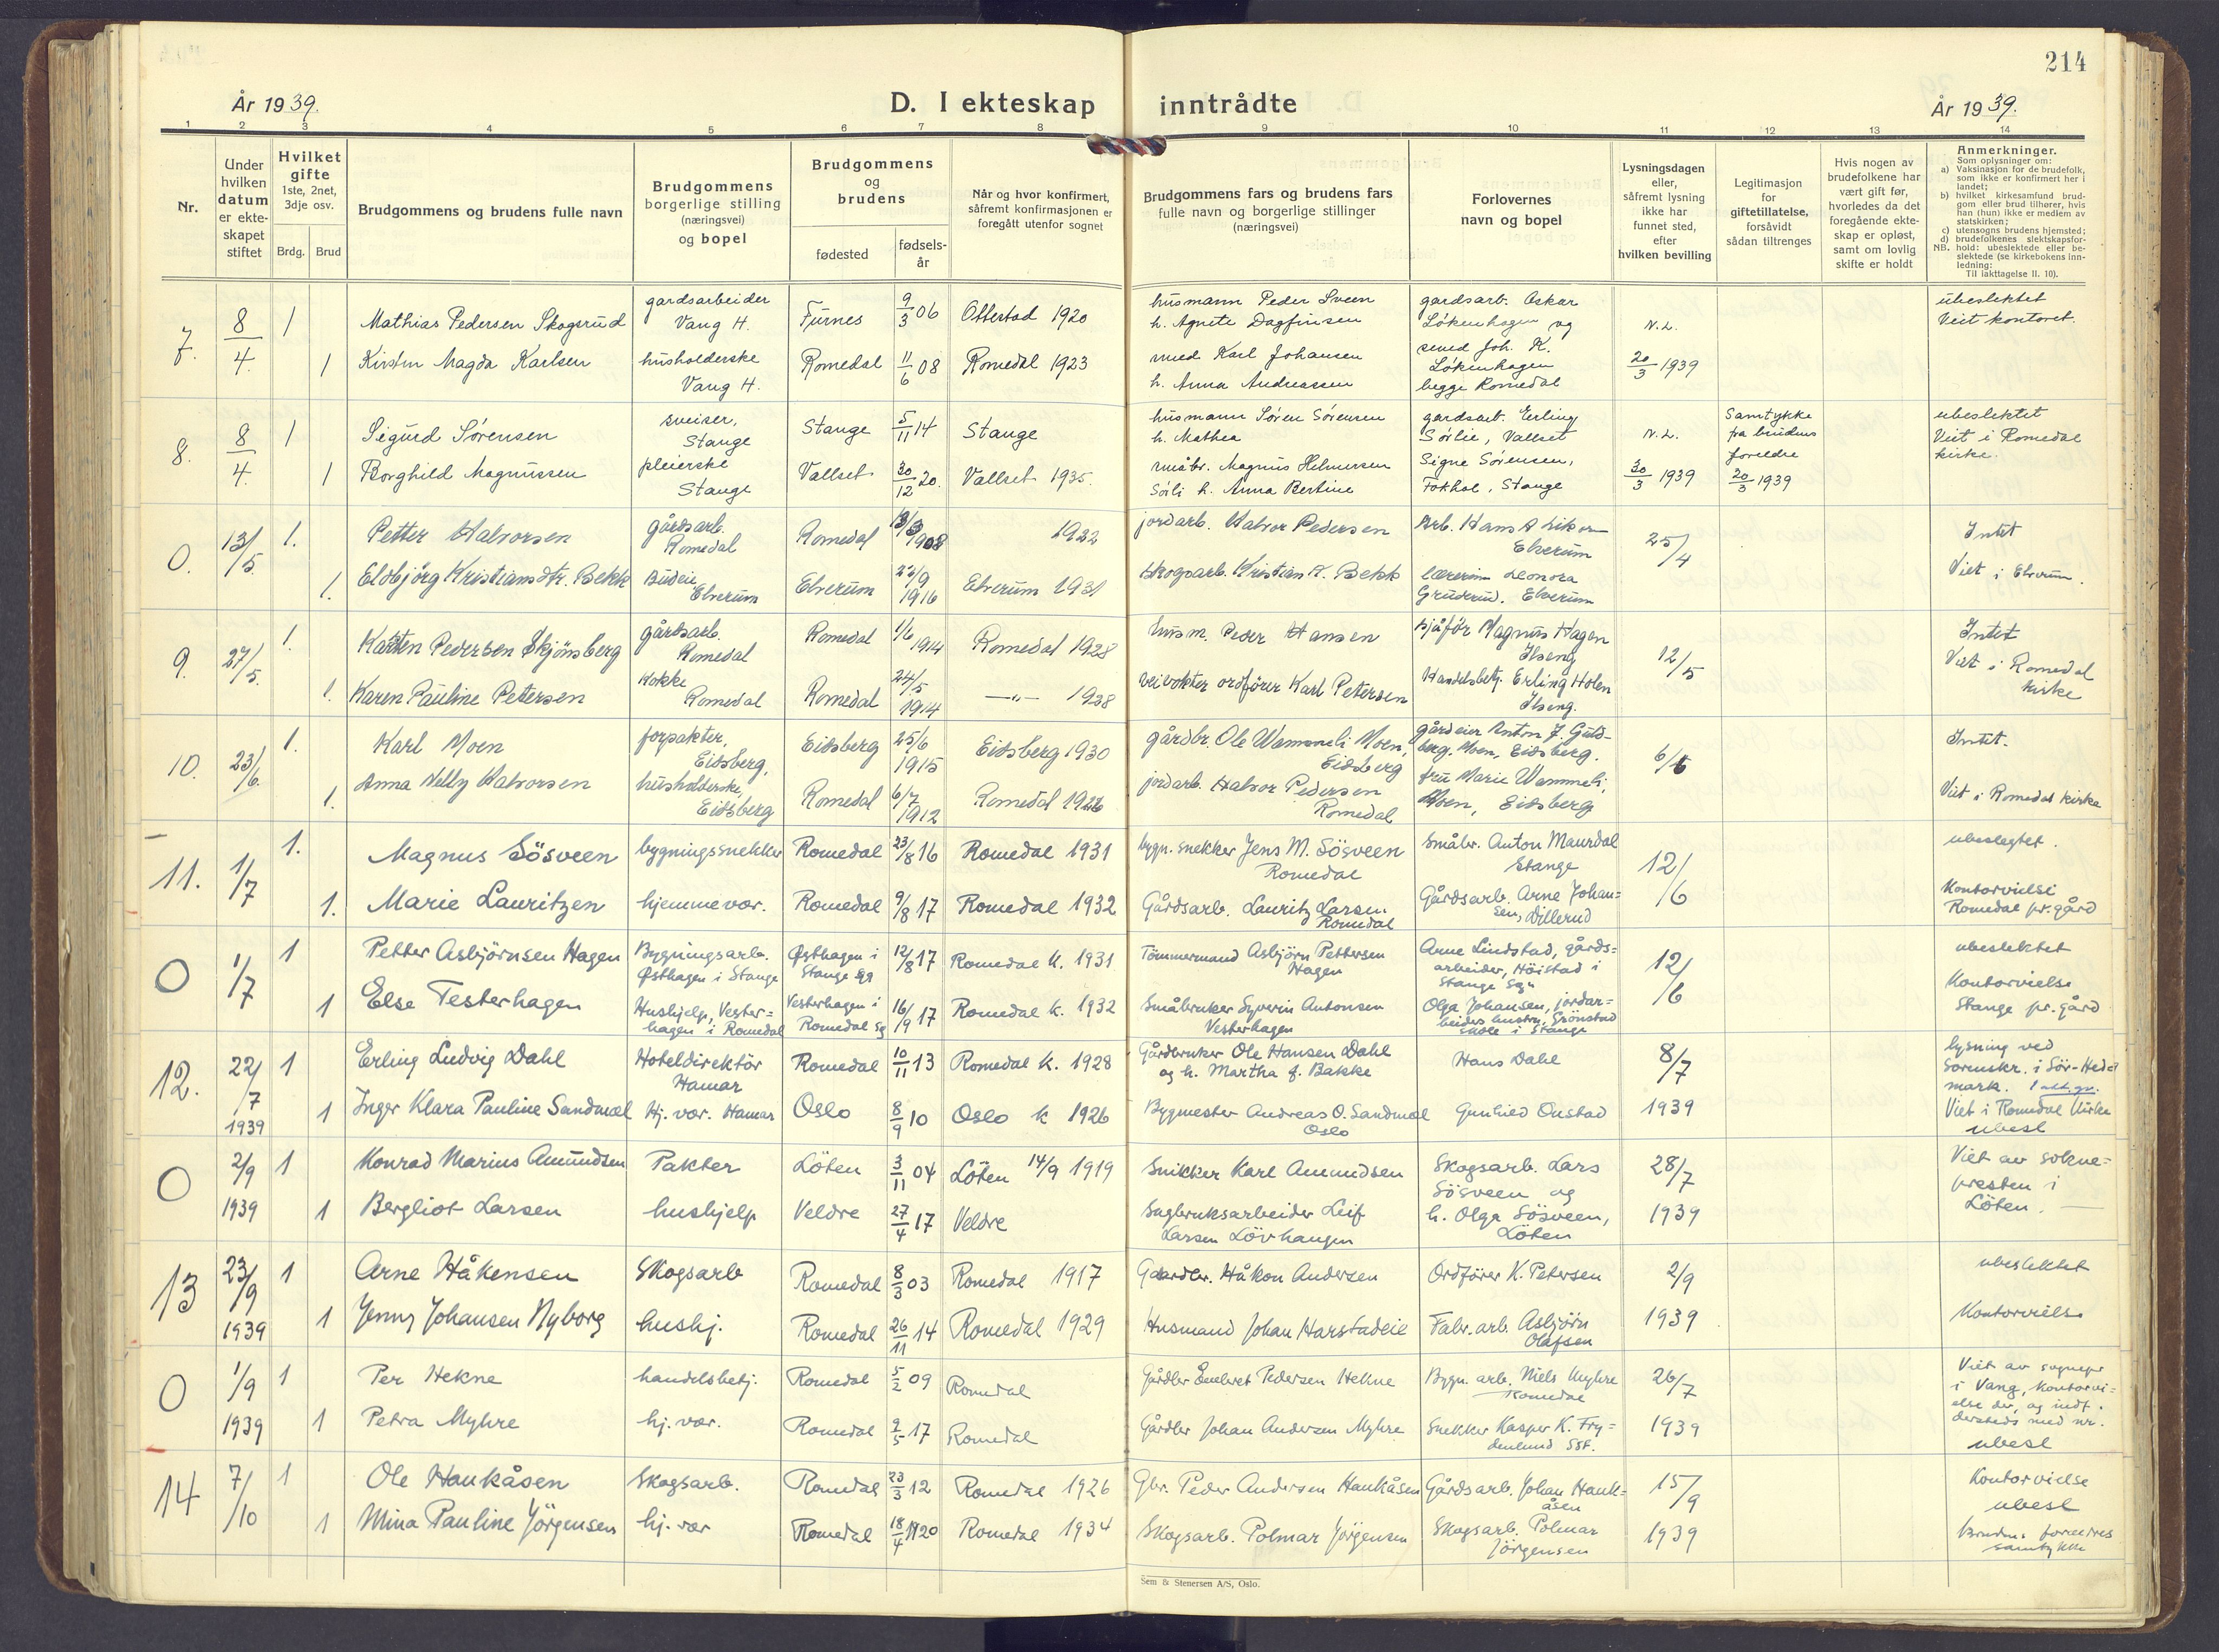 214
År 1939.
D. I ekteskap inntrådte
År 1939.
1 2 3 4 5 6 7 8 9 10 11 12 13 14
Nr.
Under
hvilken
datum
er ekte-
skapet
stiftet
Hvilket
gifte
1ste, 2net,
3dje osv.
Brdg. Brud
Brudgommens og brudens fulle navn
Brudgommens
borgerlige stilling
(næringsvei)
og bopel
Brudgommens
og
brudens
fødested
fødsels-
år
Når og hvor konfirmert,
såfremt konfirmasjonen er
foregått utenfor sognet
Brudgommens fars og brudens fars
fulle navn og borgerlige stillinger
(næringsvei)
Forlovernes
navn og bopel
Lysningsdagen
eller,
såfremt lysning
ikke har
funnet sted,
efter
hvilken bevilling
Legitimasjon
for
giftetillatelse,
forsåvidt
sådan tiltrenges
Hvis nogen av
brudefolkene har
vært gift før,
hvorledes da det
foregående ekte-
skap er opløst,
samt om lovlig
skifte er holdt
Anmerkninger.
Som oplysninger om:
a) Vaksinasjon for de brudefolk,
som ikke er konfirmert her i
landet;
b) hvilket kirkesamfund brud-
gom eller brud tilhører, hvis
han (hun) ikke er medlem av
statskirken;
c) utensogns brudens hjemsted;
d) brudefolkenes slektskapsfor-
NB. hold: ubeslektede eller be-
slektede (se kirkebokens inn-
ledning:
Til iakttagelse II. 10).
7. 8/4. 1 Mathias Pedersen Skogsrud
gardsarbeider
Vang H.
Furnes 9/3 06 Ottestad 1920
husmann Peder Sveen
h. Agnete Dagfinsen
gardsarb. Oskar
Løkenhagen og
N.L.
ubeslektet
Viet kontoret.
1 Kirsten Magda Karlsen
husholderske
Vang H.
Romedal 11/6 08 Romedal 1923
smed Karl Johansen
h. Anna Andreassen
smed Joh. K.
Løkenhagen
begge Romedal
20/3 1939
8. 8/4. 1 Sigurd Sørensen
sveiser,
Stange
Stange 5/11 14 Stange
husmann Søren Sørensen
h. Mathea
gardsarb. Erling
Sørlie, Vallset
N.L.
Samtykke
fra brudens
foreldre
20/3 1939
ubeslektet
Viet i Romedal
kirke.
1 Borghild Magnussen
pleierske
Stange
Vallset 30/12 20. Vallset 1935.
småbr. Magnus Helmersen
Sørli h. Anna Bertine
Signe Sørensen,
Fokhol, Stange
30/3 1939
0. 13/5. 1. Petter Halvorsen
gårdsarb.
Romedal
Romedal 1908 1922
jordarb. Halvor Pedersen
Arb. Hans
Elverum
25/4
Intet
Viet i Elverum.
1. Eldbjørg Kristiansdtr. Bekk
Budeie
Elverum
Elverum 23/9 1916 Elverum 1931
skogsarb. Kristian A. Bekk
lærerinne Leonora
Gruderud. Elverum
9. 27/5. 1. Karsten Pedersen Skjønsberg
gårdsarb.
Romedal
Romedal 1/6 1914 Romedal 1928
husm. Peder Hansen
sjåfør Magnus Hagen
Ilseng
12/5
Intet
Viet i Romedal
kirke
1. Karen Pauline Petersen
Kokke
Romedal
Romedal 24/5 1914 —"— 1928
veivokter ordfører Karl Petersen
Handelsbetj. Erling Holen
Ilseng.
10. 23/6. 1. Karl Moen
forpakter,
Eidsberg,
Eidsberg 25/6 1915 Eidsberg 1930
gårdbr. Ole Wammeli Moen,
Eidsberg
gårdeier Anton J. Guld-
berg. Moen, Eidsberg.
6/6
Intet.
1. Anna Nelly Halvorsen
husholderske,
Eidsberg
Romedal 6/7 1912 Romedal 1926
jordarb. Halvor Pedersen
Romedal
fru Marie Wammeli,
Moen, Eidsberg
Viet i Romedal kirke
11. 1/7 1. Magnus Sösveen
bygningssnekker
Romedal 23/8 16 Romedal 1931
bygn. snekker Jens M. Sösveen
Romedal
Småbr. Anton Maurdal
Stange
12/6
ubeslegtet.
1. Marie Lauritzen
hjemmevær.
Romedal 9/8 17 Romedal 1932
Gårdsarb. Lauritz Larsen
Romedal
Gårdsarb. Arne Johan=
sen, Dillerud
Kontorvielse
Romedal pr.gård
0 1/7 1 Petter Asbjörnsen Hagen
Bygningsarb.
Østhagen i Stange
Østhagen i
Stange sg
12/8 17 Romedal k. 1931
Tömmermand Asbjörn Pettersen
Hagen
Arne Lindstad, gårds=
arbeider, Höistad i
Stange Sg"
12/6
ubeslektet
Kontorvielse
Stange pr. gård
1 Else Testerhagen
Hushjelp, Vester=
hagen i Romedal
Vesterhagen i
Romedal sg
16/9 17 Romedal k. 1932
Småbruker Syverin Antonsen
Vesterhagen
Olga Johansen, jordar=
beiders hustru, Grönstad
skole i Stange
12. 22/7 1939 1 Erling Ludvig Dahl
Hoteldirektör
Hamar
Romedal 10/11 13 Romedal k. 1928
Gårdbruker Ole Hansen Dahl
og h. Martha f. Bakke
Hans Dahl
8/7
lysning ved
Sorenskr. i Sör-Hed
mark.
1 Inger Klara Pauline Sandmæl
Hj. vær. Hamar
Oslo 8/9 10 Oslo k 1926
Bygmester Andreas O. Sandmæl
Oslo
Gunhild Onstad
1939
Viet i Romedal Kirke
ubesl
0 2/9 1939 1 Konrad Marius Amundsen
Pakter
Löten 3/11 04 Löten 14/9 1919
Snikker Karl Amundsen
Skogsarb. Lars
Sösveen og
28/7
Viet av sokne=
presten i
Löten.
1 Bergliot Larsen
hushjelp
Veldre 27/4 17 Veldre
Sagbruksarbeider Leif
Larsen Lövhaugen
h. Olga Sösveen,
Löten
1939
13 23/9 1939 1 Arne Håkensen
Skogsarb
Romedal 8/3 03 Romedal 1917
Gaardbr. Håkon Andersen
Ordförer K. Petersen
2/9
ubeslektet
1 Jenny Johansen Nyborg
hushj.
Romedal 26/11 14 Romedal 1929
Husmand Johan Harstadeie
Fabr. arb. Asbjörn
Olafsen
1939
Kontorvielse
0 1/9 1939 1 Per Hekne
handelsbetj.
Romedal 5/2 09 Romedal
Gårdbr Pedersen Hekne
Bygn. arb. Niels Myhre
Romedal
26/7
Viet av sognepr
i Vang, Kontorvi=
else der, og indf.
dersteds med nr.
1 Petra Myhre
hj. vær.
Romedal 2/5 17 Romedal
Gårdbr Johan Andersen Myhre
Snekker Kasper K. Fry=
denlund Sst.
1939
ubesl
14 7/10 1 Ole Haukåsen
Skogsarb.
Romedal 23/3 12 Romedal 1926
Gbr. Peder Andersen Haukåsen
Gårdsarb. Johan Hauk=
åsen
15/9
Kontorvielse
ubesl
1 Mina Pauline Jörgensen
hj. vær
Romedal 18/4 1920 Romedal 1934
Skogsarb. Polmar Jörgensen
Skogsarb. Polmar
Jörgensen
1939
Brudens foreldres
samtykke
Sem & Stenersen A/S, Oslo.